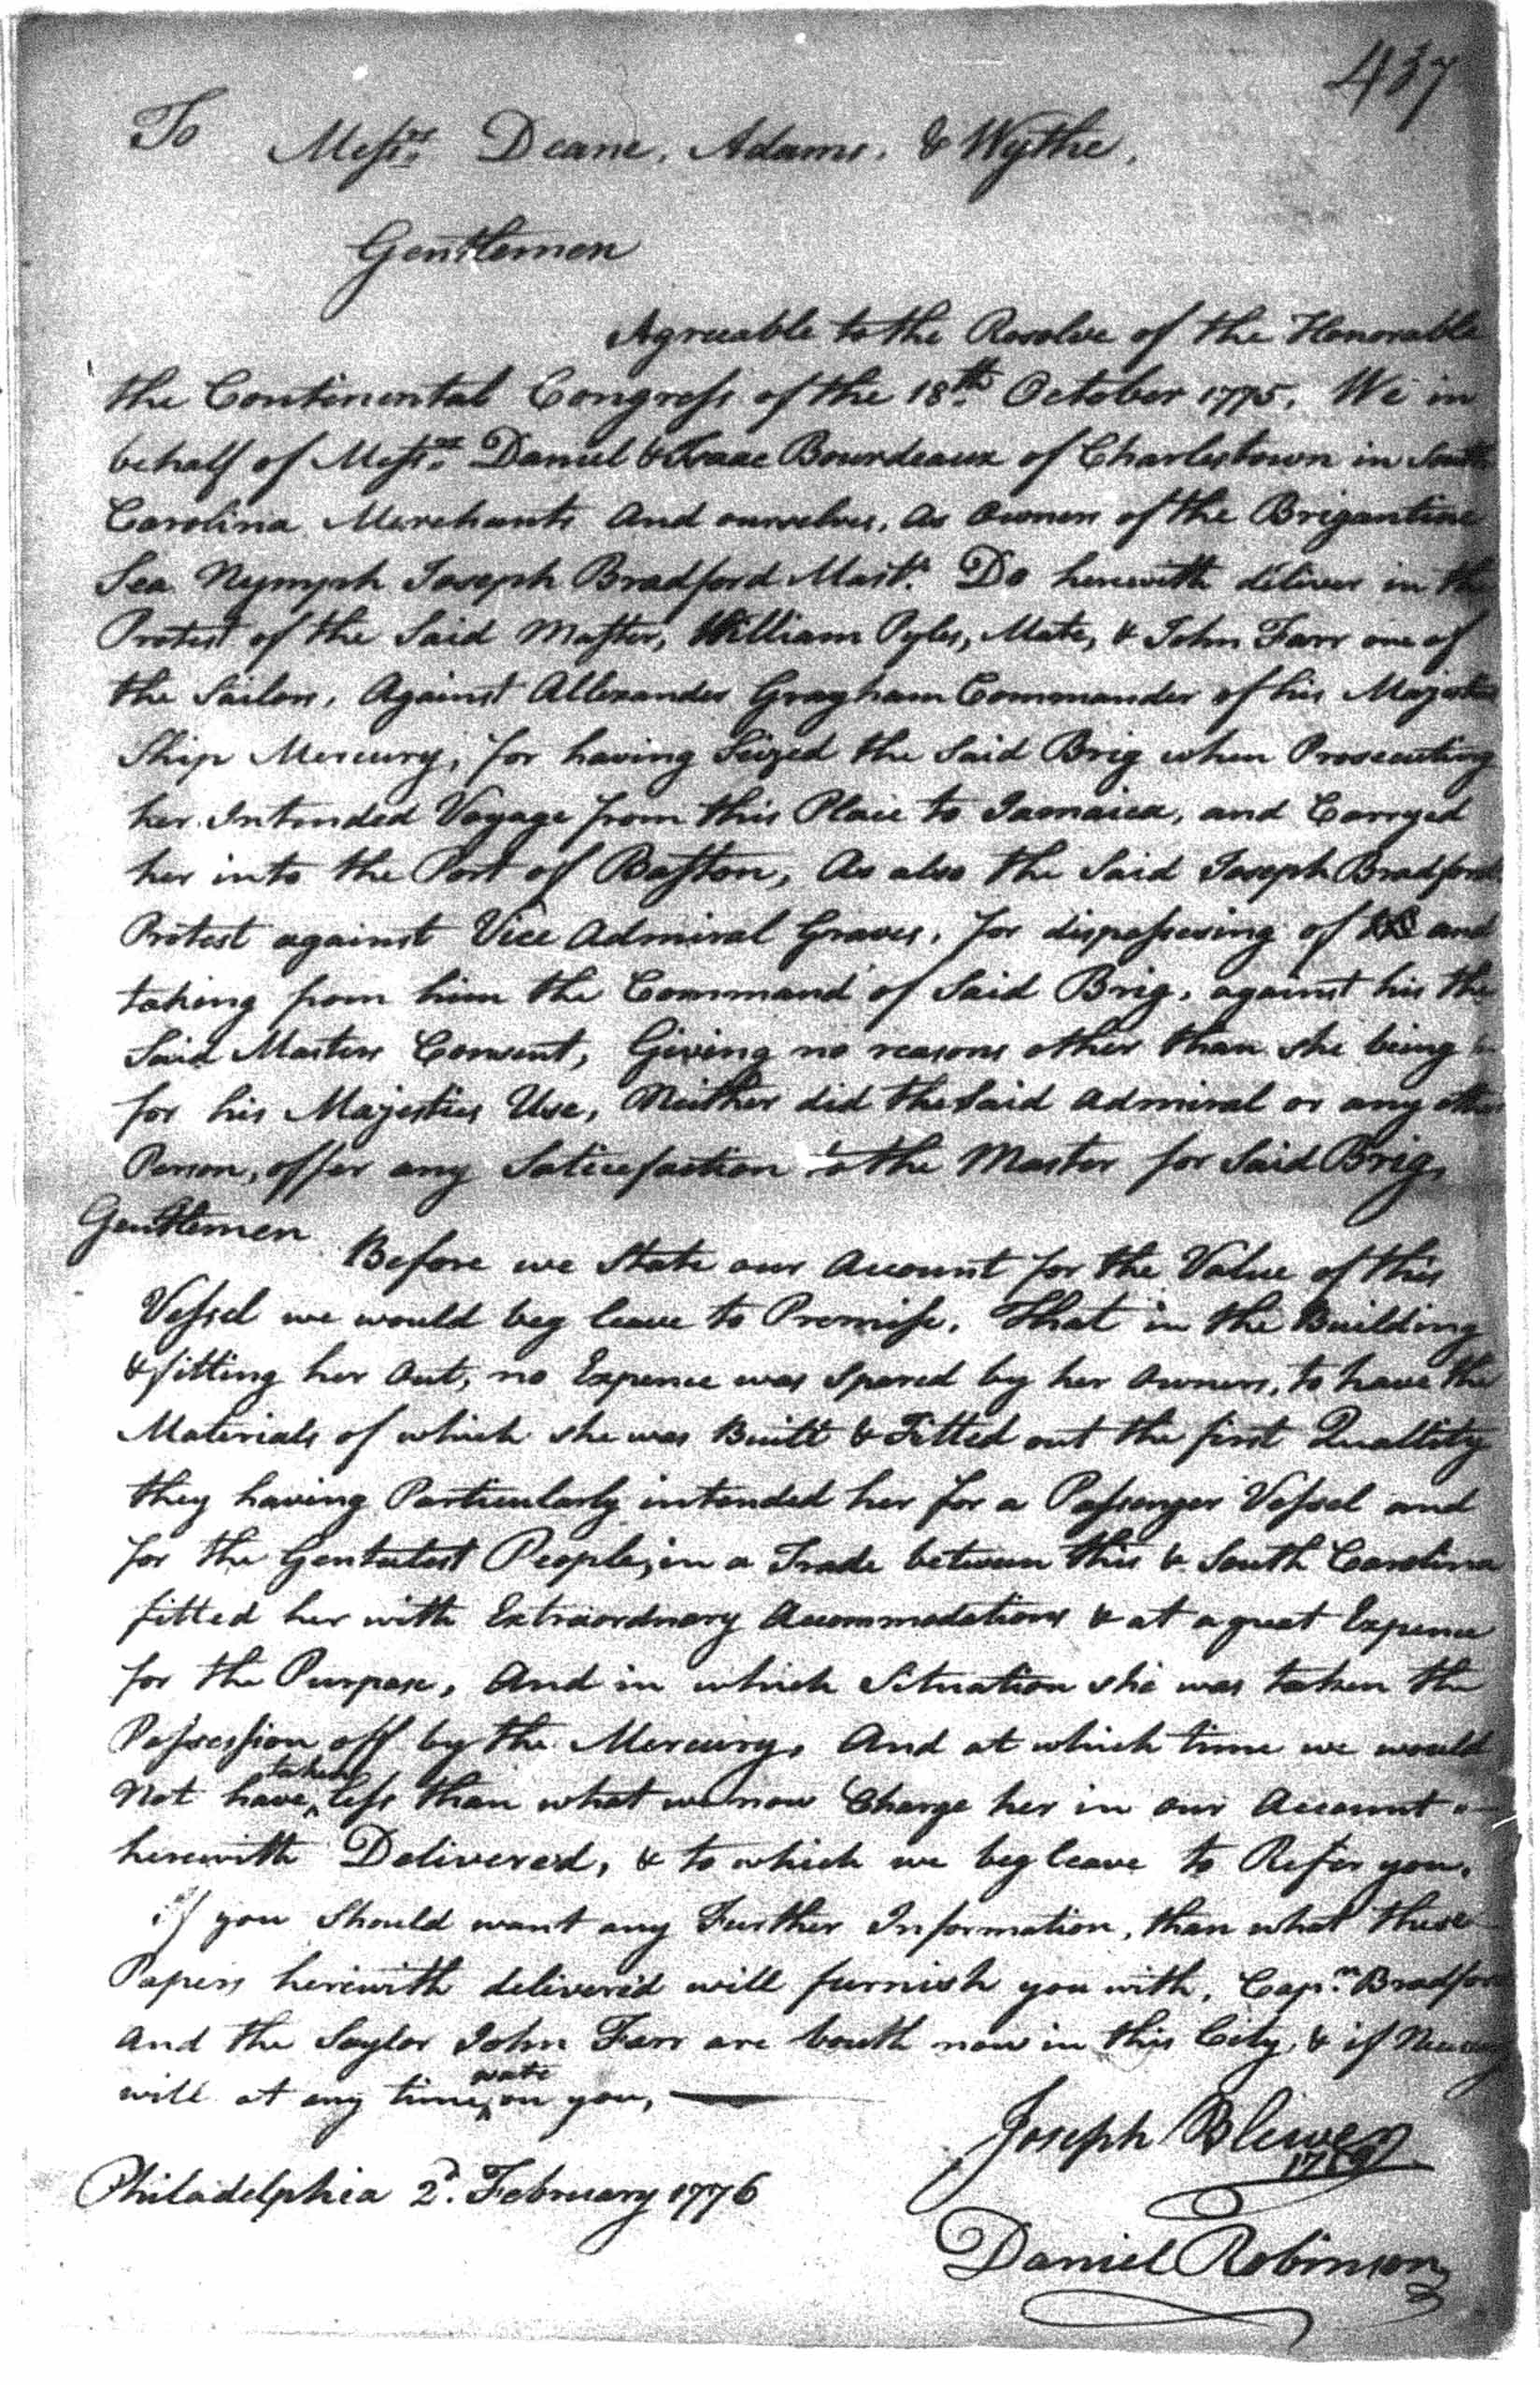 437
To Messrs. Deane, Adams, & Wythe,
Gentlemen
Agreeable to the Resolve of the Honorable
the Continental Congress of the 18th. October 1775, We in
behalf of Messrs. Daniel & Isaac Bourdeaux of Charlestown in South
Carolina Merchants And ourselves, As Owners of the Brigantine
Sea Nymph Joseph Bradford Mastr. Do herewith deliver in the
Protest of the Said Master, William Pyles, Mate, & John Farr one of
the Sailors, Against Allexander Grayham Commander of his Majesties
Ship Mercury, for having Seized the Said Brig when Prosecuting
her Intended Voyage from this Place to Jamaica, and Carryed
her into the Port of Boston, As also the Said Joseph Bradfords
Protest against Vice Admiral Graves, for dispossessing of and
taking from him the Command of Said Brig, against his the
Said Masters Consent, Giving no reasons other than she being
for his Majesties Use, Neither did the Said Admiral or any other
Person, offer any Saticefaction to the Master for Said Brig,
Gentlemen
Before we State our Account for the Value of this
Vessel we would beg leave to Premise, That in the Building
& fitting her Out, no Expence was Spared by her Owners, to have the
Materials of which she was Built & Fitted out the first Quallity
they having Particularly intended her for a Passenger Vessel and
for the Genteelest People, in a Trade between this & South Carolina
fitted her with Extraordnary Accommodations & at a great Expence
for the Purpose, And in which Situation she was taken the
Possession off by the Mercury, And at which time we would
Not have taken less than what we now Charge her in our Account
herewith Delivered, & to which we beg leave to Refer you,
if you Should want any Further Information, than what these
Papers herewith deliver'd will furnish you with, Capn. Bradford
And the Saylor John Farr are bouth now in this City, & if Necessary
will at any time wate on you,
Joseph Blewer
Philadelphia 2d. February 1776
Daniel Robinson